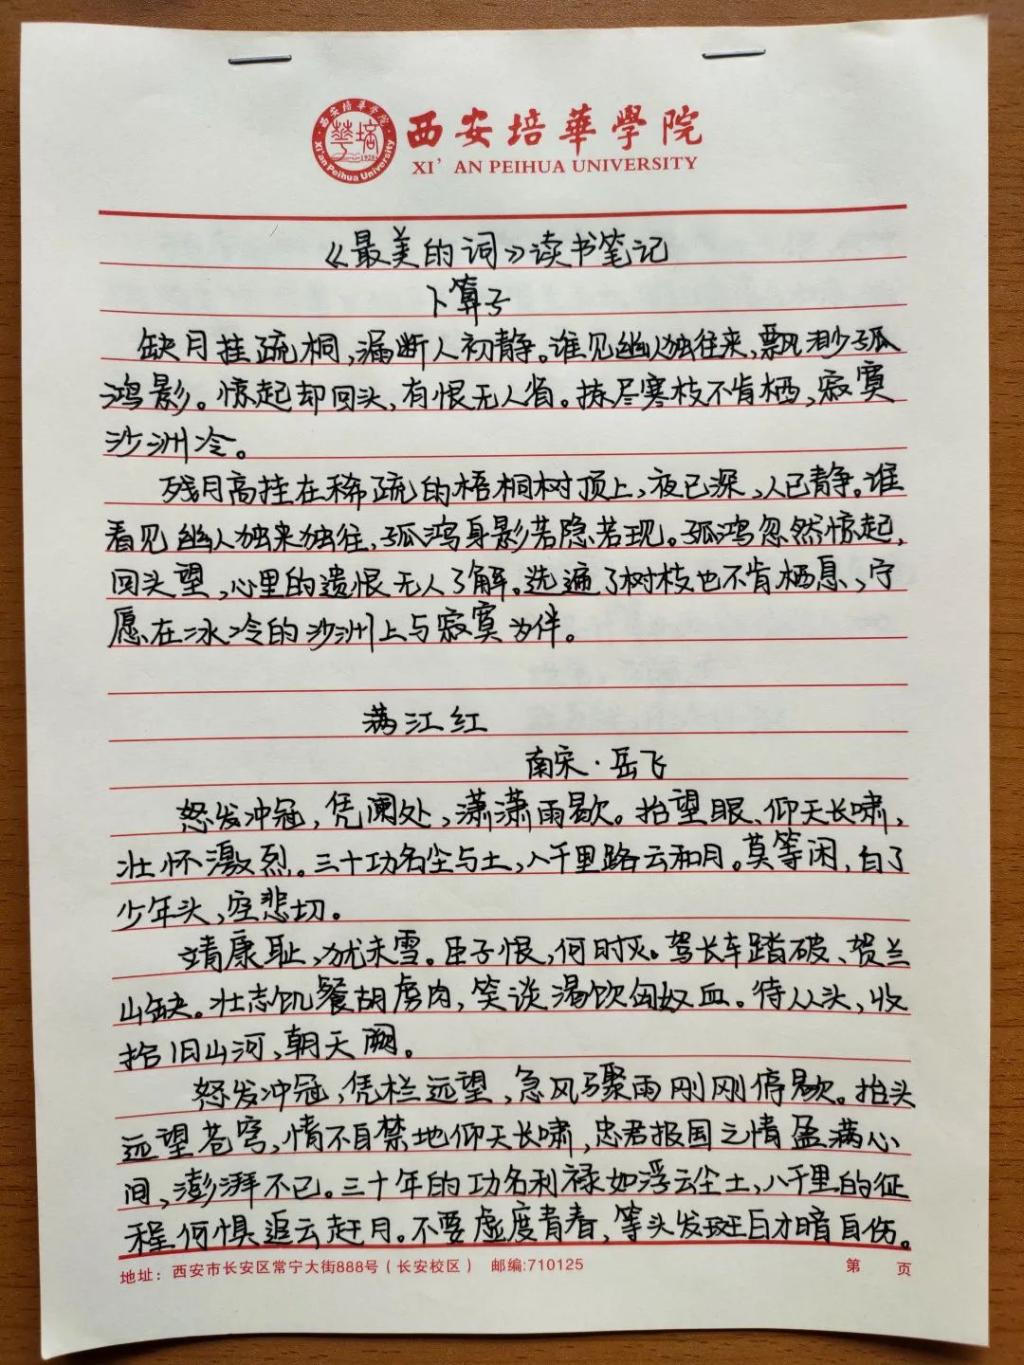 西安培華學院
XI'AN PEIHUA UNIVERSITY
《最美的词》读书笔记
卜算子
缺月挂疏桐，漏断人初静。谁见幽人独往来，飘渺孤
鸿影。惊起却回头，有恨无人省。拣尽寒枝不肯栖，寂寞
沙洲冷。
残月高挂在稀疏的梧桐树顶上，夜已深，人已静。谁
看见幽人独来独往，孤鸿身影若隐若现。孤鸿忽然惊起，
回头望，心里的遗恨无人了解。选遍了树枝也不肯栖息，宁
愿在冰冷的沙洲上与寂寞为伴。
满江红
南宋·岳飞
怒发冲冠，凭阑处，潇潇雨歇。抬望眼、仰天长啸，
壮怀激烈。三十功名尘与土，八千里路云和月。莫等闲，白了
少年头，空悲切。
靖康耻，犹未雪。臣子恨，何时灭。驾长车踏破、贺兰
山缺。壮志饥餐胡虏肉，笑谈渴饮匈奴血。待从头，收
拾旧山河，朝天阙。
怒发冲冠，凭栏远望，急风骤雨刚刚停歇。抬头
远望苍穹，情不自禁地仰天长啸，忠君报国之情盈满心
间，澎湃不已。三十年的功名利禄如浮云尘土，八千里的征
程何惧追云赶月。不要虚度青春，等头发斑白才暗自伤。
地址：西安市长安区常宁大街888号（长安校区） 邮编:710125 第 页